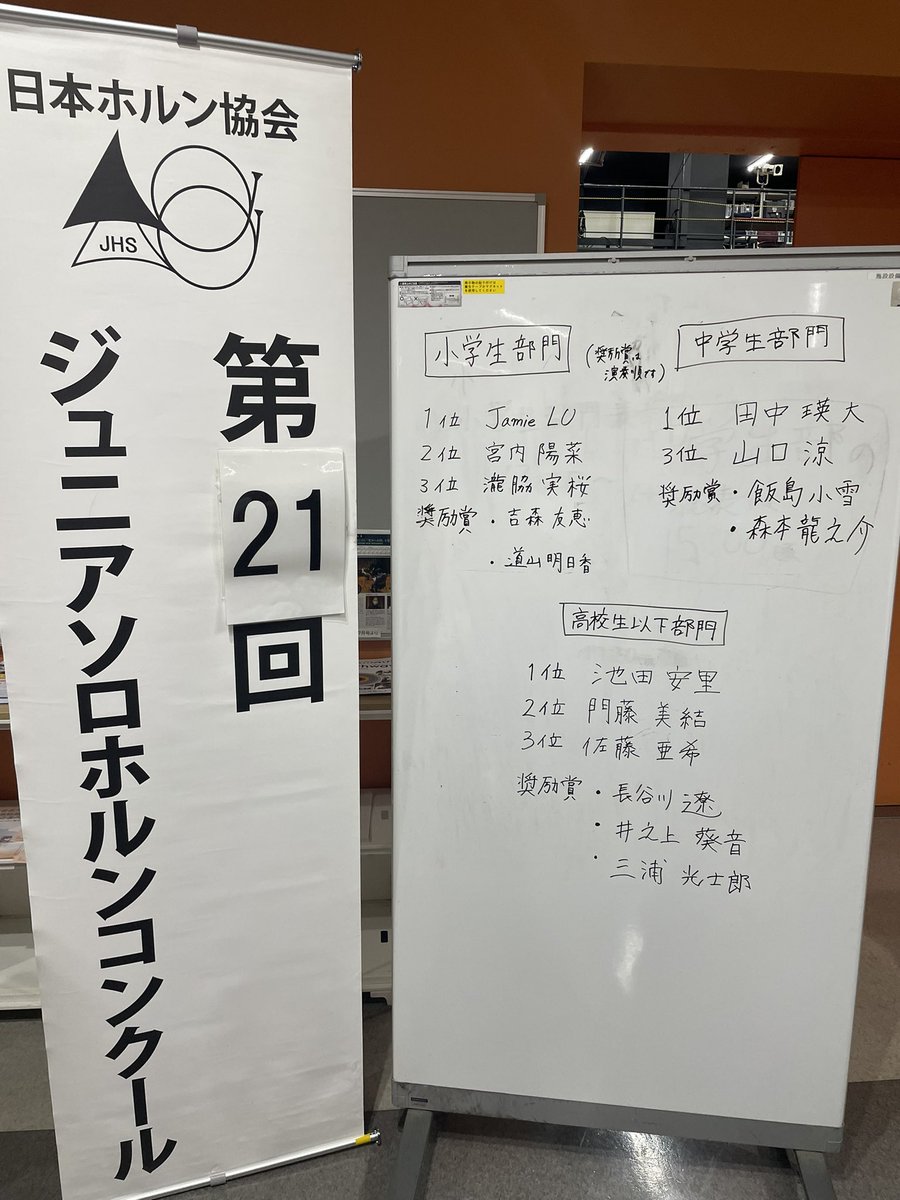 日本ホルン協会
JHS
第21回
ジュニアソロホルンコンクール
小学生部門
(奨励賞は
演奏順です)
1位 Jamie LU
2位 宮内 陽菜
3位 瀧脇 実桜
奨励賞 ・吉森 友恵
・道山 明日香
中学生部門
1位 田中 瑛大
3位 山口 涼
奨励賞・飯島小雪
・森本龍之介
高校生以下部門
1位 池田 安里
2位 門藤 美結
3位 佐藤 亜希
奨励賞 ・長谷川 遼
・井之上 葵音
・三浦 光士郎